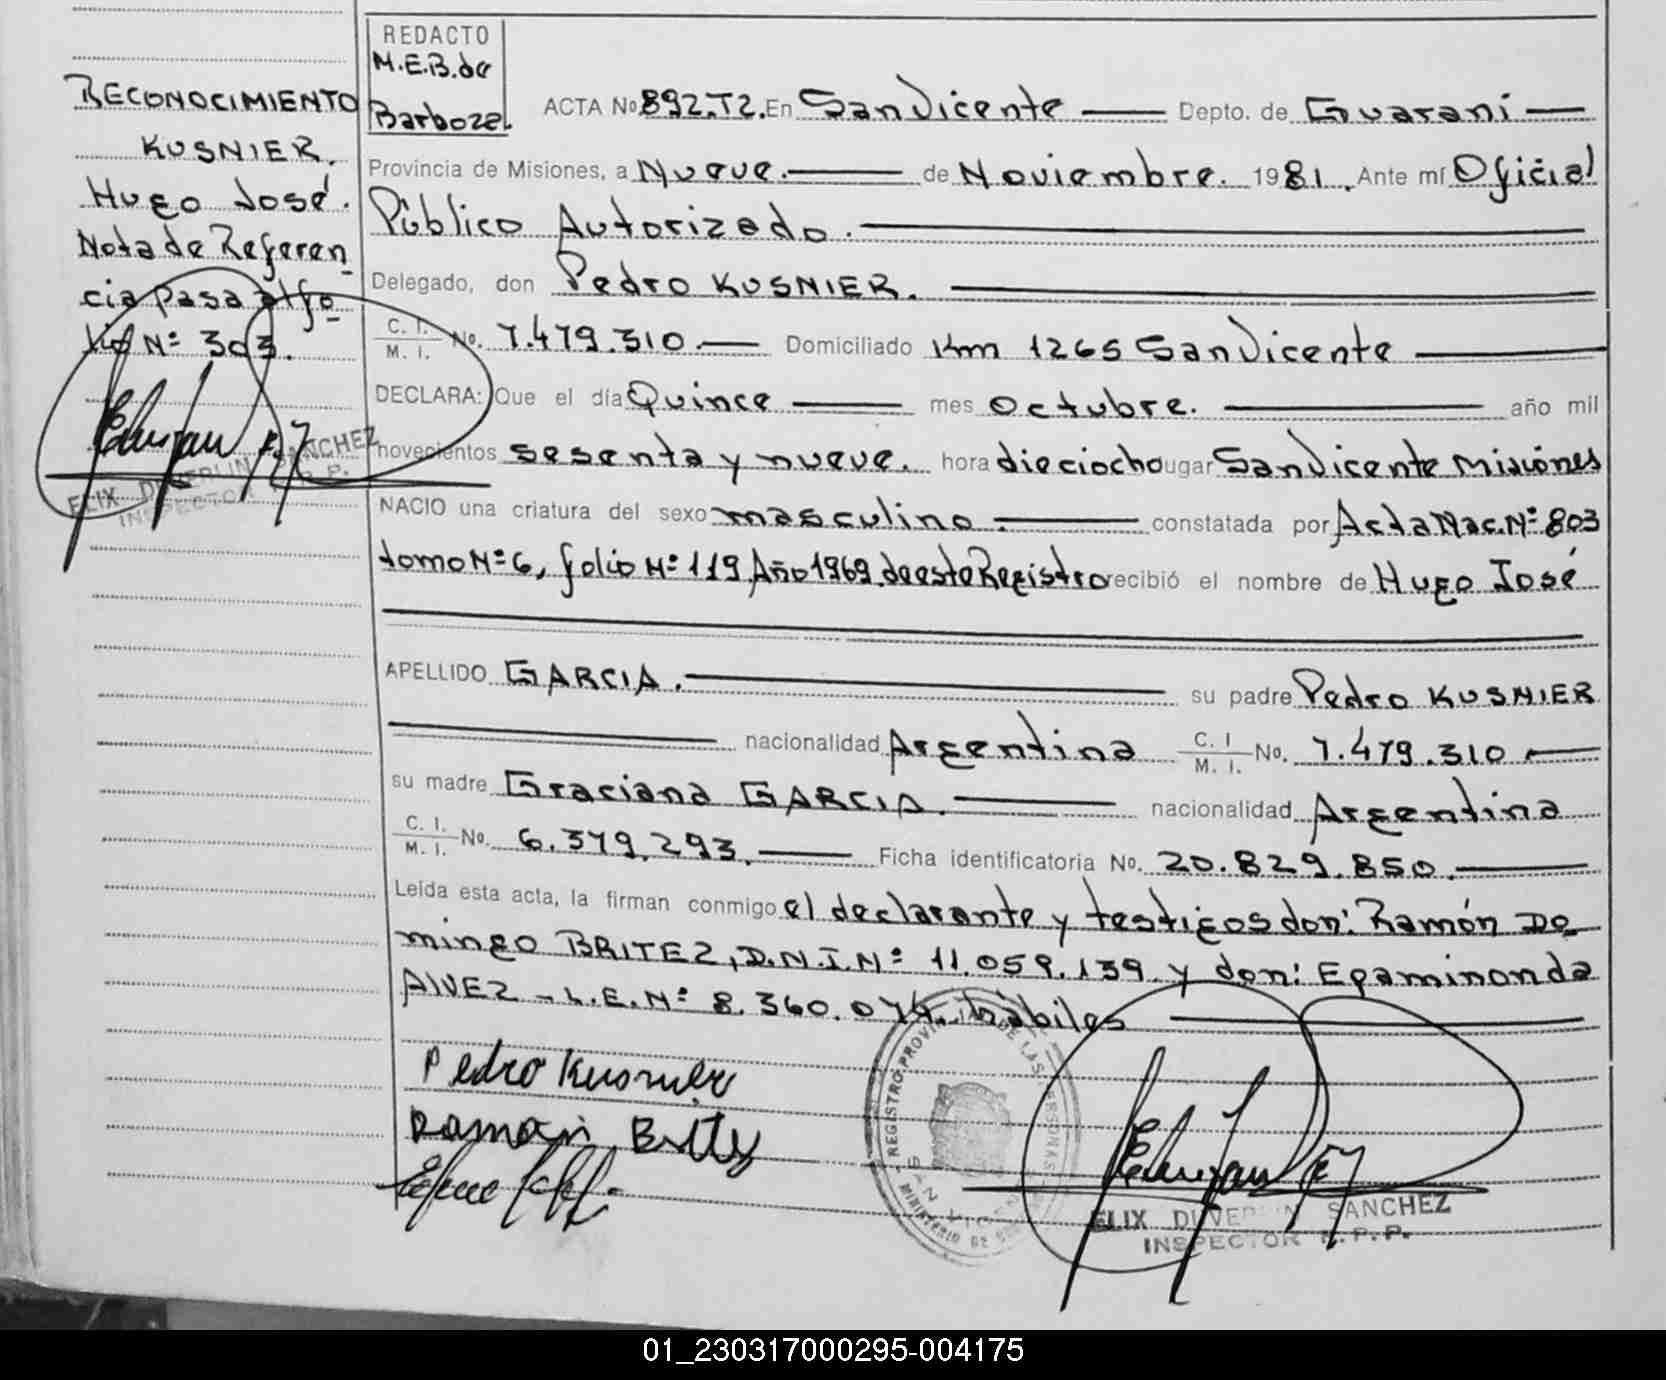 REDACTO
M.E.B.de
Barboza.
RECONOCIMIENTO
KUSNIER.
Hugo José.
Nota de Referen
cia pasa al fo
lio Nº 303.
ELIX DUVERLIN SANCHEZ
INSPECTOR R. P. P.
ACTA Nº 892.T2. En San Vicente Depto. de Guaraní
Provincia de Misiones, a Nueve. de Noviembre. 1981. Ante mí Oficial
Público Autorizado.
Delegado, don Pedro KUSNIER.
C. I. M. I. No. 7.479.310. Domiciliado Km 1265 San Vicente
DECLARA: Que el día Quince mes octubre. año mil
novecientos sesenta y nueve. hora dieciocho ugar San Vicente Misiones
NACIO una criatura del sexo masculino. constatada por Acta Nac. Nº 803
tomo Nº 6, folio Nº 119 Año 1969 de este Registro recibió el nombre de Hugo José
APELLIDO GARCIA. su padre Pedro KUSNIER
nacionalidad Argentina C. I M. I. No. 7.479.310
su madre Graciana GARCIA. nacionalidad Argentina
C. I. M. I. No. 6.379.293. Ficha identificatoria No. 20.829.850.
Leída esta acta, la firman conmigo el declarante y testigos don: Ramón Do
mingo BRITEZ, D.N.I. Nº 11.059.139 y don: Epaminonda
ALVEZ - L.E. Nº 8.360.074. hábiles
Pedro Kusnier
Ramón Britez
REGISTRO PROVINCIAL DE LAS PERSONAS
SAN VICENTE
MINISTERIO DE
ELIX DUVERLIN SANCHEZ
INSPECTOR R. P. P.
01_230317000295-004175